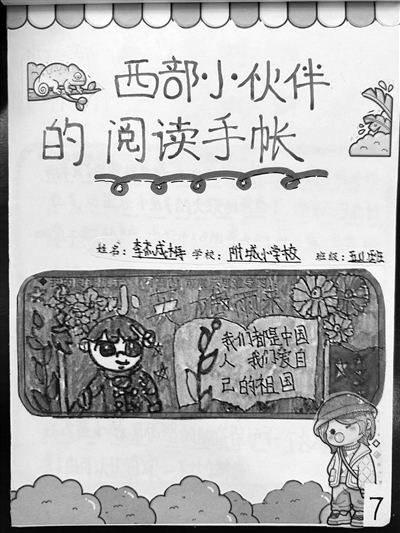 西部小伙伴
的阅读手帐
姓名: 学校: 小学校 班级:
小
我们都是中国
人 我们爱自
己的祖国
7